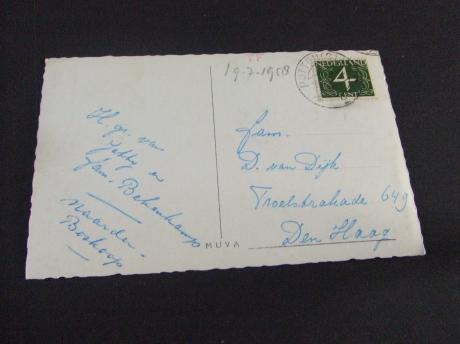 19-7-1958
NEDERLAND
4
CENT
H. gr. van
Jetty en
fam. Behoukamp
Naarden -
Boskoop
MUVA
Fam.
D. van Dijk
Troelstrakade 649
Den Haag